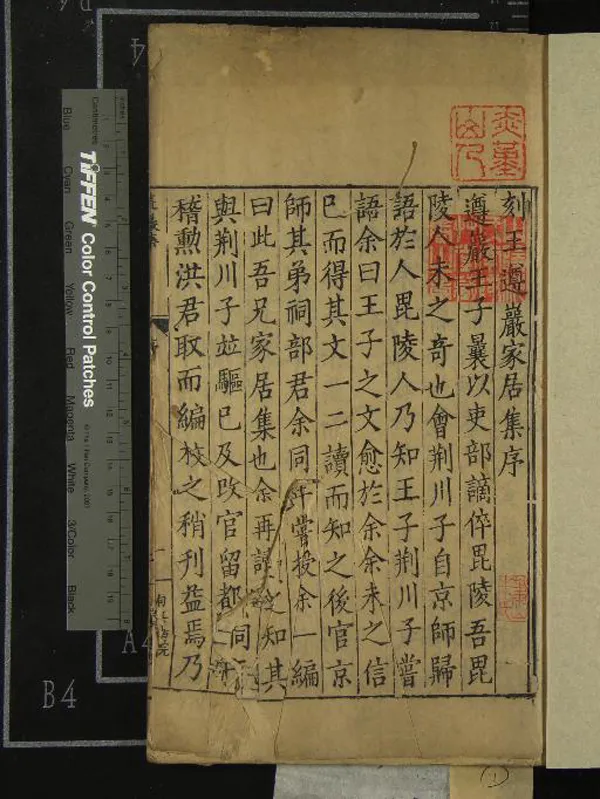 刻王遵巖家居集序
遵巖王子曩以吏部謫倅毘陵吾毘
陵人未之竒也會荆川子自京師歸
語於人毘陵人乃知王子荆川子嘗
語余曰王子之文愈於余余未之信
巳而得其文一二讀而知之後官京
師其弟祠部君余同年嘗投余一編
曰此吾兄家居集也余再讀 知其
與荆川子並驅已及改官留都 同年
稽勲洪君取而編校之稍刊益焉乃
TIFFEN Color Control Patches
© The Tiffen Company, 2007
Centimetres
Inches
Blue
Cyan
Green
Yellow
Red
Magenta
White
3/Color
Black
B4
A4